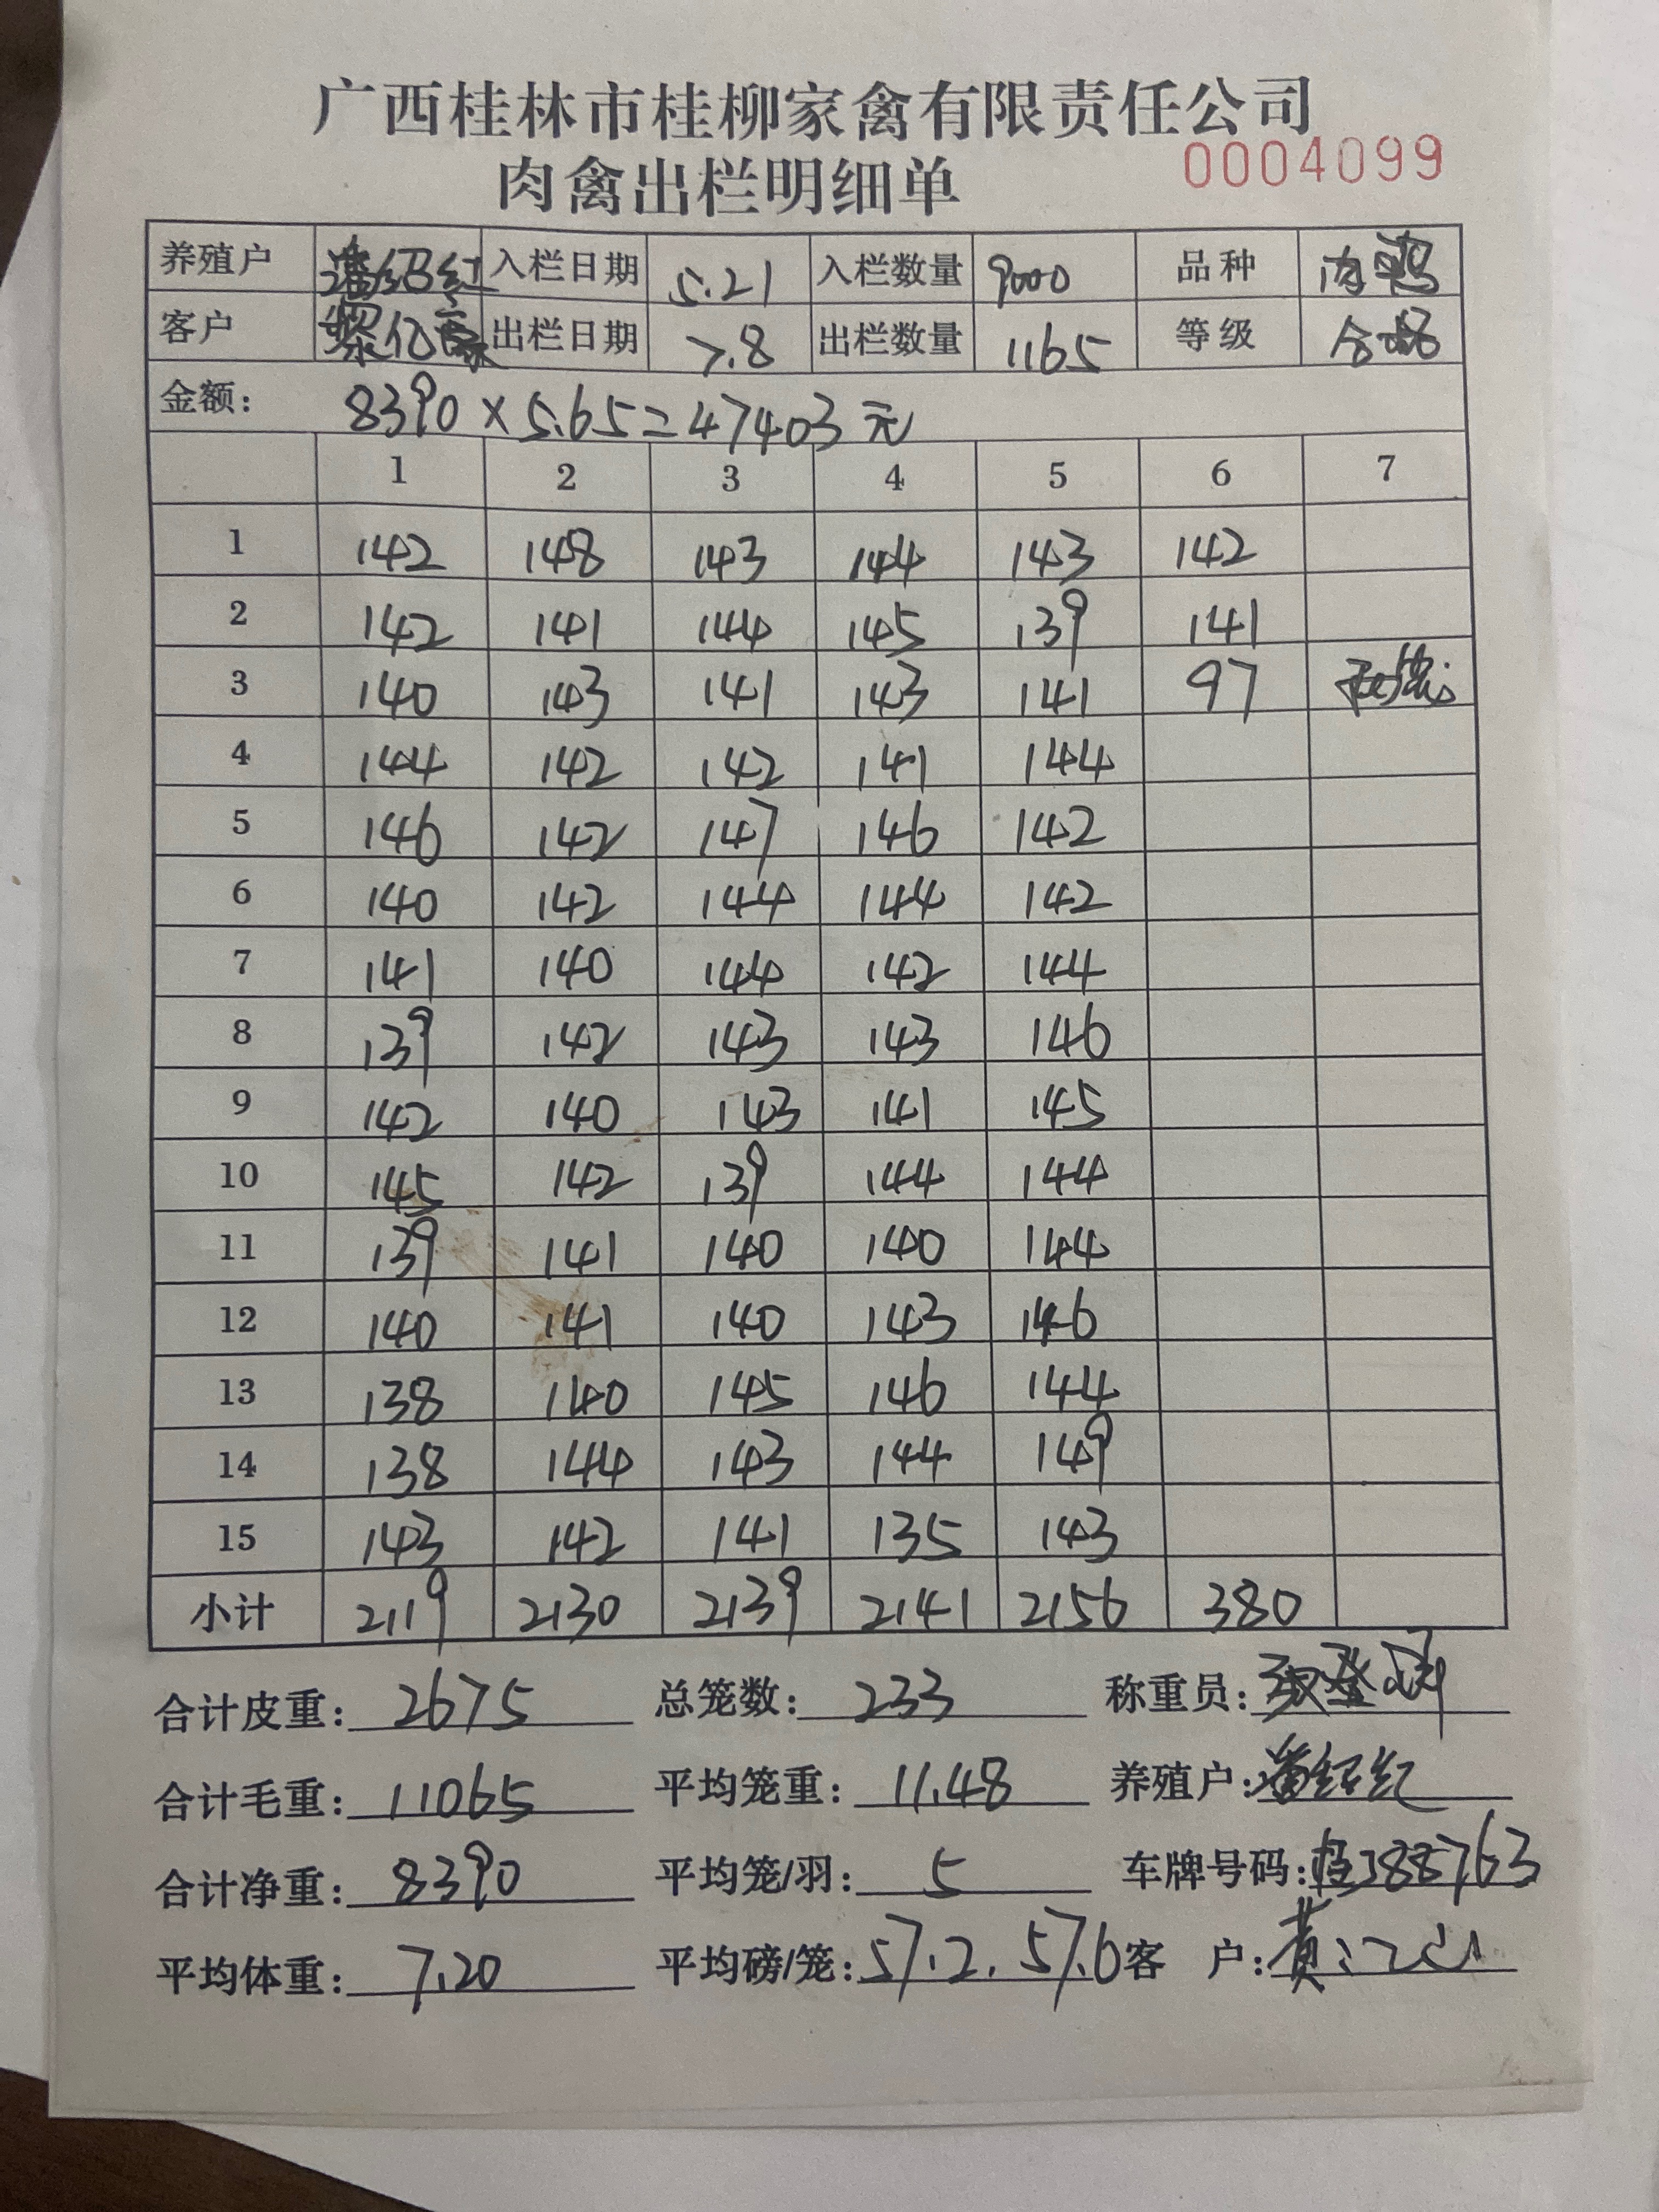 广西桂林市桂柳家禽有限责任公司
肉禽出栏明细单 0004099
养殖户 潘绍红 入栏日期 5.21 入栏数量 9000 品种 肉鸭
客户 黎亿豪 出栏日期 7.8 出栏数量 1165 等级 合格
金额: 8390×5.65=47403元
1 2 3 4 5 6 7
1 142 148 143 144 143 142
2 142 141 144 145 139 141
3 140 143 141 143 141 97
4 144 142 142 141 144
5 146 142 147 146 142
6 140 142 144 144 142
7 141 140 144 142 144
8 139 142 143 143 146
9 142 140 143 141 145
10 145 142 139 144 144
11 139 141 140 140 144
12 140 141 140 143 146
13 138 140 145 146 144
14 138 144 143 144 149
15 143 142 141 135 143
小计 2119 2130 2139 2141 2156 380
合计皮重: 2675 总笼数: 233 称重员:
合计毛重: 11065 平均笼重: 11.48 养殖户: 潘绍红
合计净重: 8390 平均笼/羽: 5 车牌号码: 桂J88763
平均体重: 7.20 平均磅/笼: 57.2. 57.6 客 户: 黄